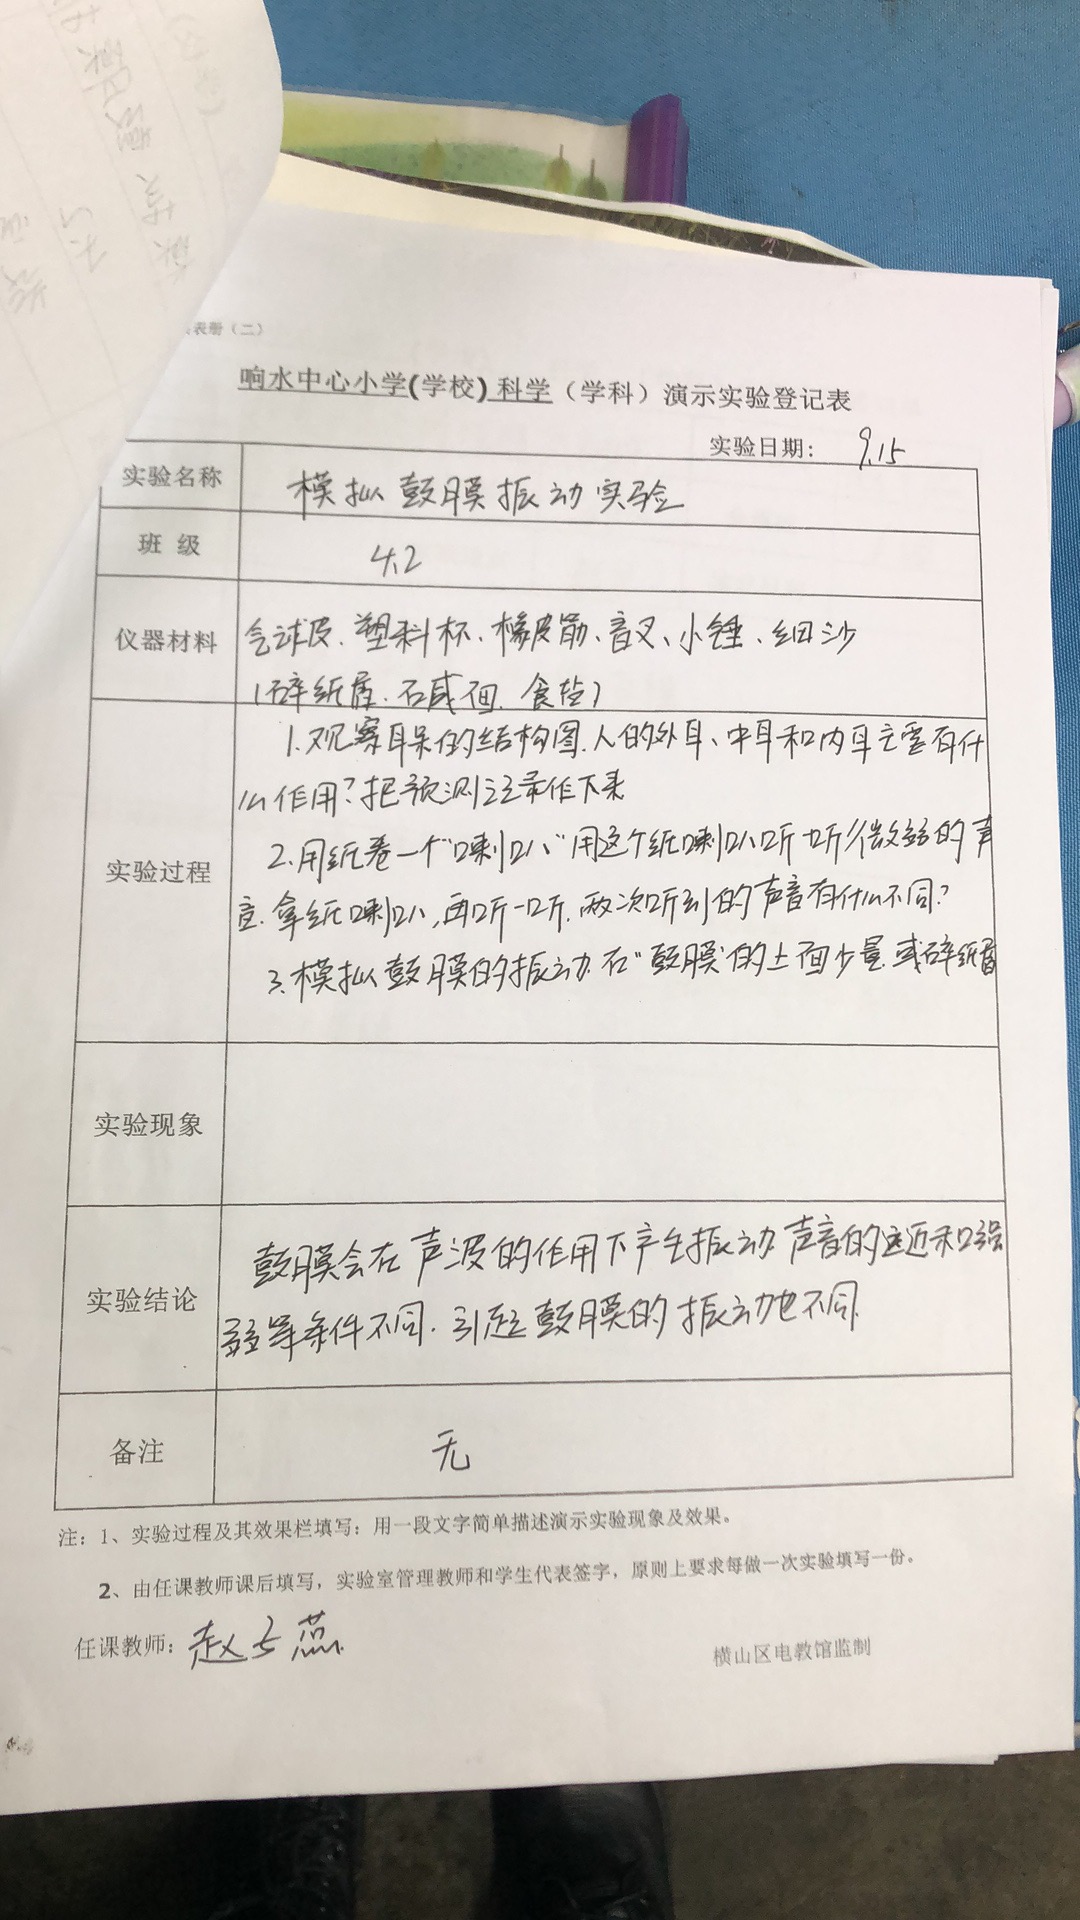 表册（二）
响水中心小学(学校) 科学（学科）演示实验登记表
实验日期： 9.15
实验名称 模拟鼓膜振动实验
班 级 4.2
仪器材料 气球皮、塑料杯、橡皮筋、音叉、小锤、细沙
（碎纸屑、石咸面、食盐）
实验过程
1.观察耳朵的结构图.人的外耳、中耳和内耳主要有什
么作用？把预测记录作下来
2.用纸卷一个“喇叭”用这个纸喇叭听一听微弱的声
音.拿纸喇叭,再听一听.两次听到的声音有什么不同?
3.模拟鼓膜的振动.在“鼓膜”的上面少量或碎纸屑
实验现象
实验结论
鼓膜会在声波的作用下产生振动.声音的远近和强
弱等条件不同.引起鼓膜的振动也不同.
备注 无
注：1、实验过程及其效果栏填写：用一段文字简单描述演示实验现象及效果。
2、由任课教师课后填写，实验室管理教师和学生代表签字，原则上要求每做一次实验填写一份。
任课教师：赵 蕊
横山区电教馆监制